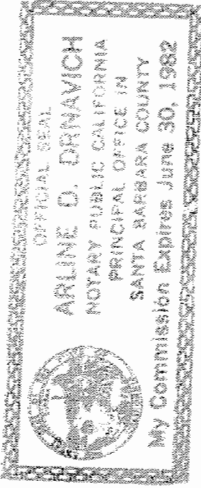 OFFICIAL SEAL
ARLINE D. DRNAVICH
NOTARY PUBLIC CALIFORNIA
PRINCIPAL OFFICE IN
SANTA BARBARA COUNTY
My Commission Expires June 30, 1982